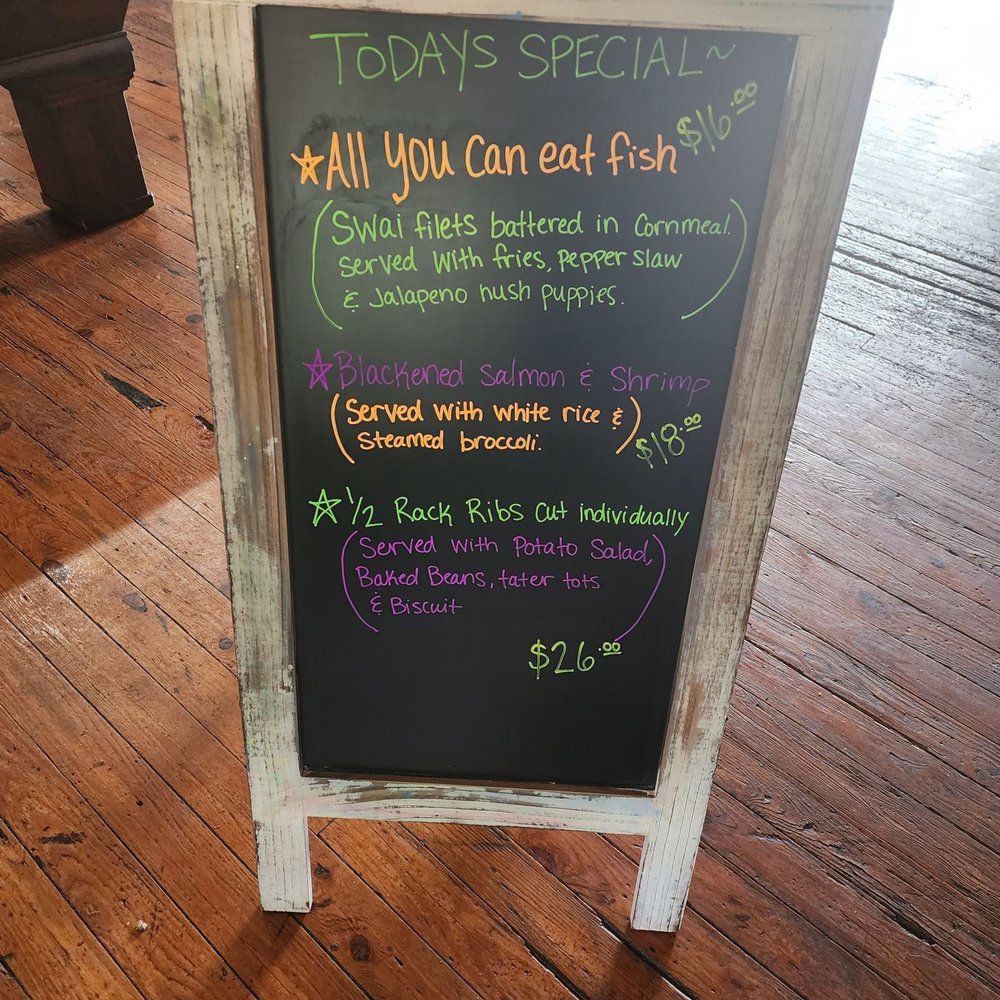 TODAYS SPECIAL~
☆All you can eat fish $16.00
(Swai filets battered in Cornmeal.
served with fries, pepper slaw
& Jalapeno hush puppies.)
☆Blackened Salmon & Shrimp
(Served with white rice &
steamed broccoli.) $18.00
☆1/2 Rack Ribs cut individually
(Served with Potato Salad,
Baked Beans, tater tots
& Biscuit)
$26.00